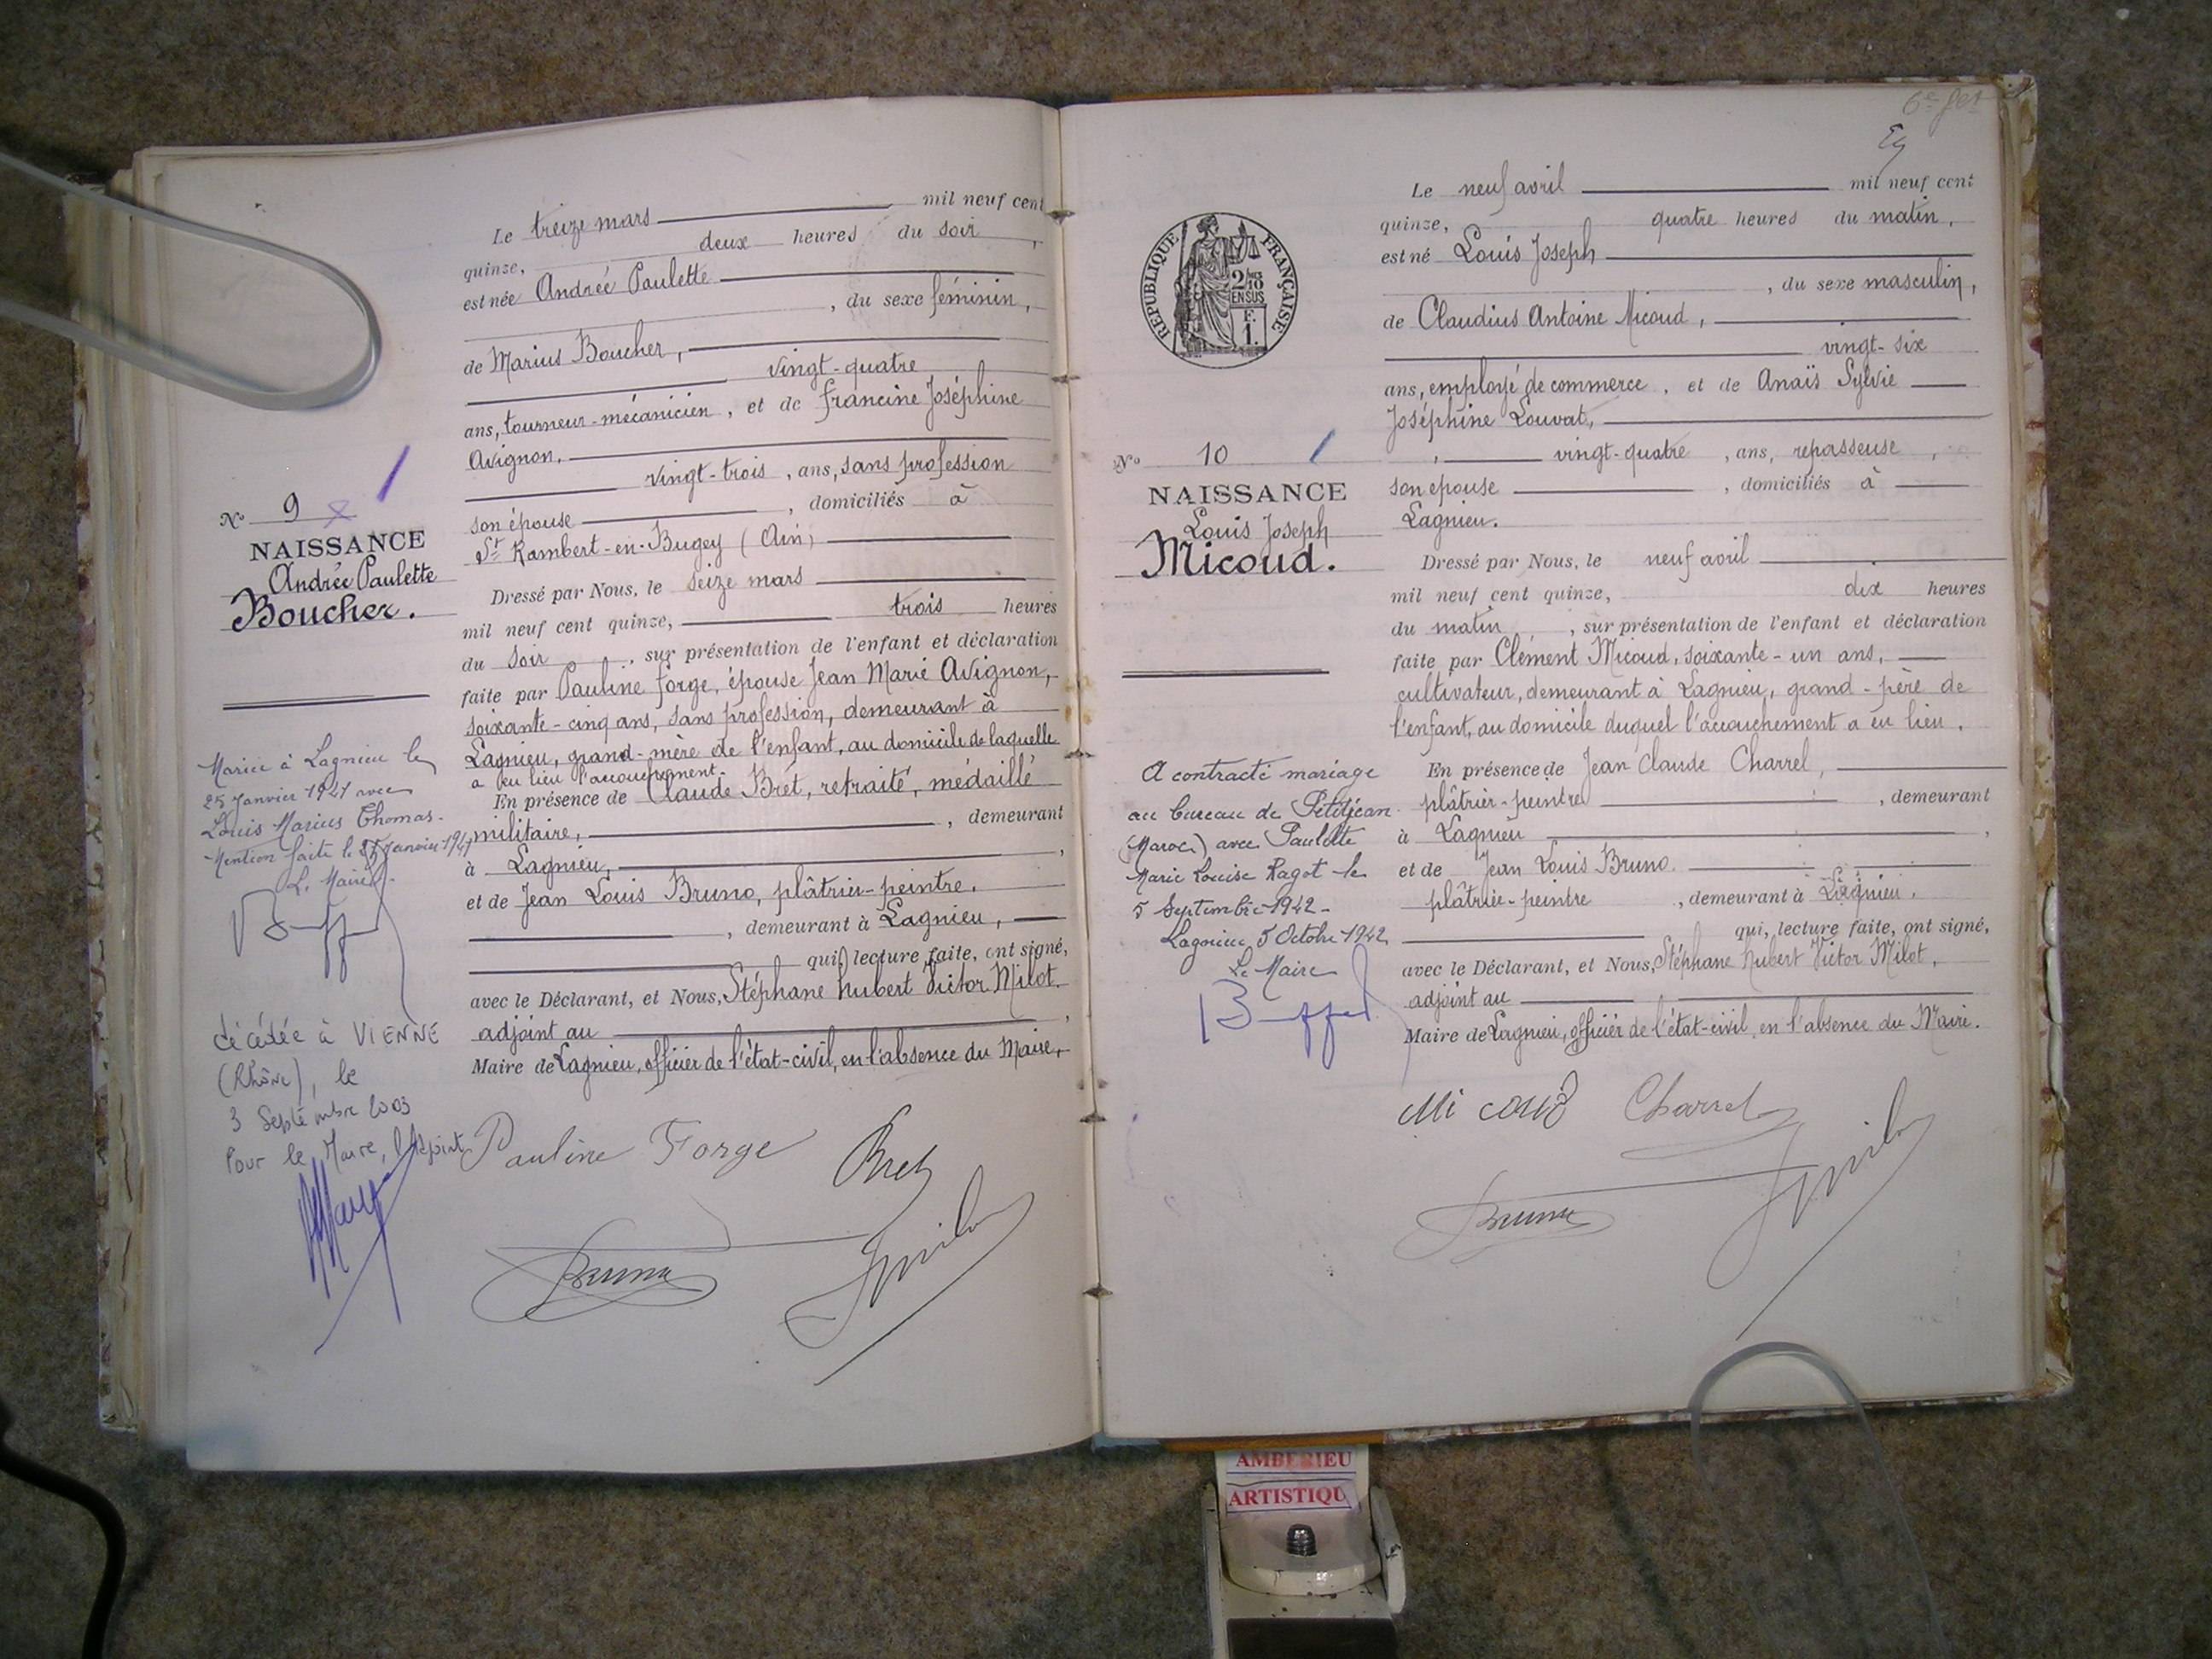 Le treize mars mil neuf cent
quinze, deux heures du soir,
est née Andrée Paulette
, du sexe féminin,
de Marius Boucher,
vingt-quatre
ans, tourneur-mécanicien, et de Francine Joséphine
Avignon,
vingt-trois, ans, sans profession
son épouse, domiciliés à
St Rambert-en-Bugey (Ain)
Dressé par Nous, le seize mars
mil neuf cent quinze, trois heures
du soir, sur présentation de l'enfant et déclaration
faite par Pauline Forge, épouse Jean Marie Avignon,
soixante-cinq ans, sans profession, demeurant à
Lagnieu, grand-mère de l'enfant, au domicile de laquelle
a eu lieu l'accouchement.
En présence de Claude Bret, retraité, médaillé
militaire, , demeurant
à Lagnieu,
et de Jean Louis Bruno, plâtrier-peintre.
, demeurant à Lagnieu,
qui, lecture faite, ont signé,
avec le Déclarant, et Nous, Stéphane Hubert Victor Milot.
adjoint au
Maire de Lagnieu, officier de l'état-civil, en l'absence du Maire,
Pauline Forge Bret
Bruno
N° 9
NAISSANCE
Andrée Paulette
Boucher.
Mariée à Lagnieu le
25 Janvier 1941 avec
Louis Marius Thomas.
Mention faite le 25 Janvier 1941
Le Maire.
décédée à VIENNE
(Rhône), le
3 Septembre 2003
Pour le Maire, l'Adjoint
Le neuf avril mil neuf cent
quinze, quatre heures du matin,
est né Louis Joseph
, du sexe masculin,
de Claudius Antoine Micoud,
vingt-six
ans, employé de commerce, et de Anaïs Sylvie
Joséphine Louvat,
, vingt-quatre, ans, repasseuse,
son épouse, domiciliés à
Lagnieu.
Dressé par Nous, le neuf avril
mil neuf cent quinze, dix heures
du matin, sur présentation de l'enfant et déclaration
faite par Clément Micoud, soixante-un ans,
cultivateur, demeurant à Lagnieu, grand-père de
l'enfant, au domicile duquel l'accouchement a eu lieu.
En présence de Jean Claude Charrel,
plâtrier-peintre, demeurant
à Lagnieu,
et de Jean Louis Bruno.
plâtrier-peintre, demeurant à Lagnieu.
qui, lecture faite, ont signé,
avec le Déclarant, et Nous, Stéphane Hubert Victor Milot,
adjoint au
Maire de Lagnieu, officier de l'état-civil en l'absence du Maire.
Micoud Charrel
Bruno
RÉPUBLIQUE FRANÇAISE
2/10
EN SUS
F.
1.
N° 10
NAISSANCE
Louis Joseph
Micoud.
A contracté mariage
au bureau de Petitjean
(Maroc) avec Paulette
Marie Louise Ragot le
5 Septembre 1942-
Lagnieu, 5 Octobre 1942
Le Maire
AMBERIEU
ARTISTIQU